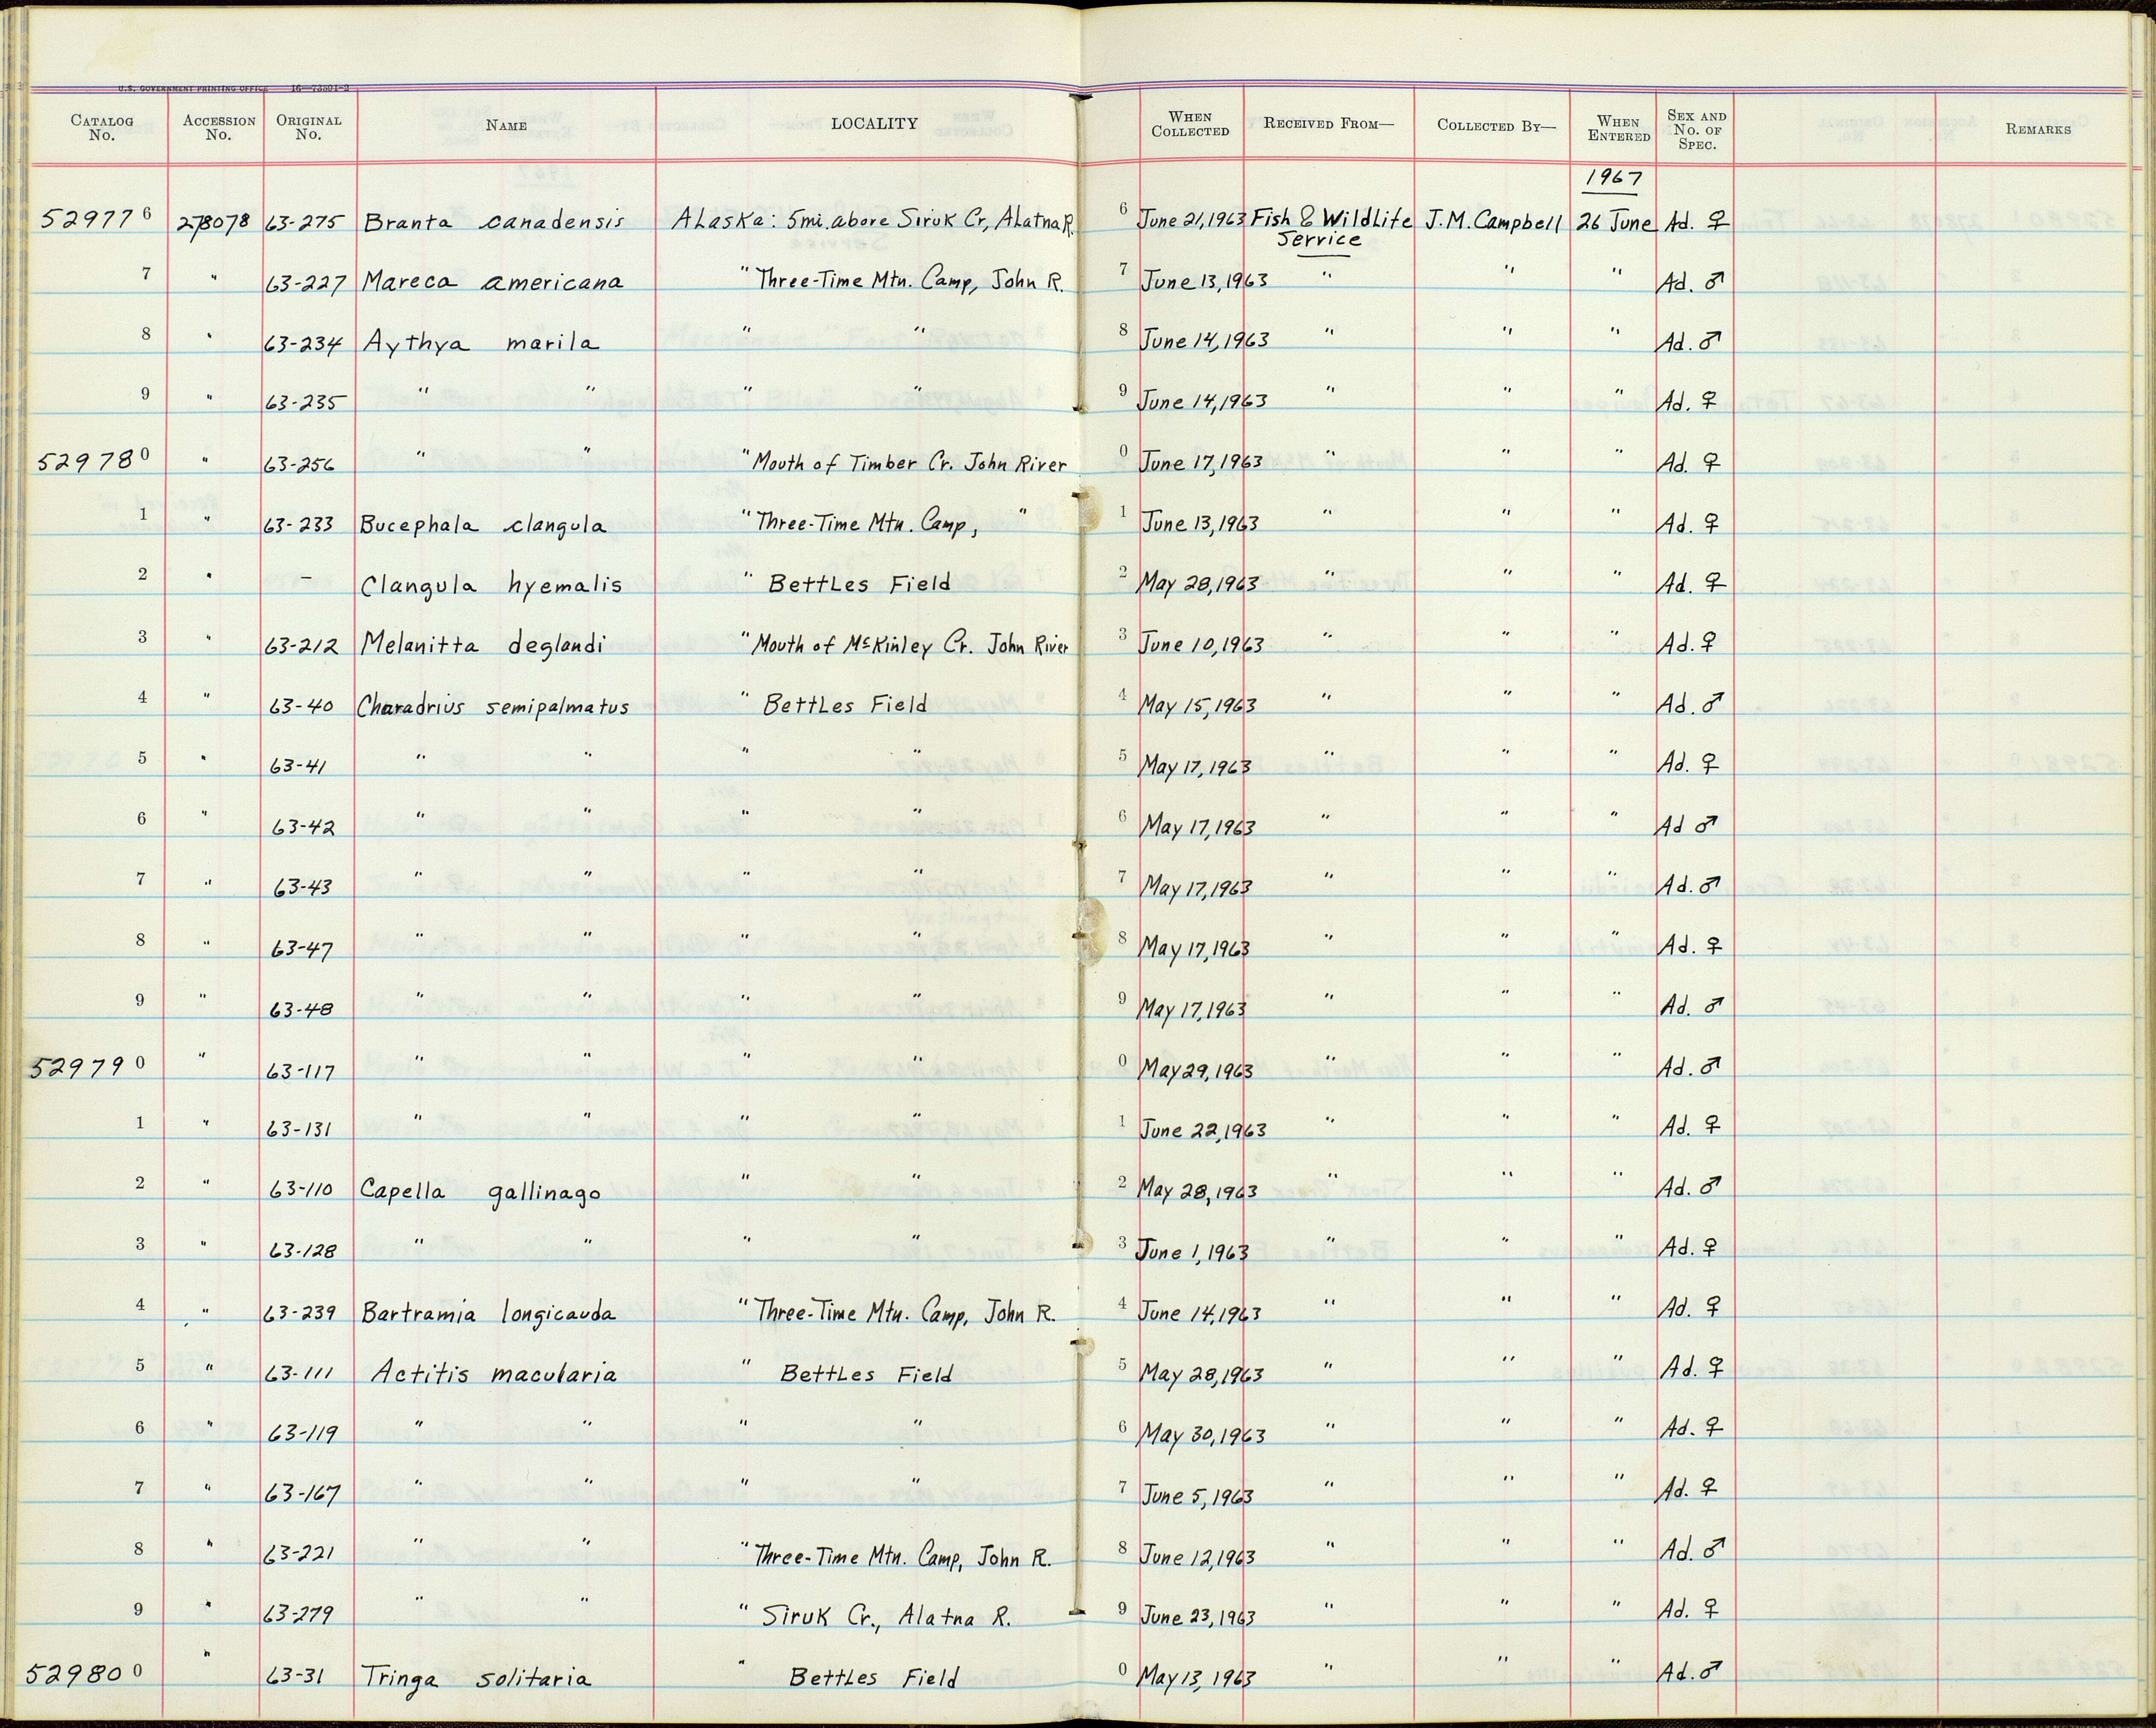 U.S. GOVERNMENT PRINTING OFFICE 16—73501-2
CATALOG No. ACCESSION No. ORIGINAL No. NAME LOCALITY WHEN COLLECTED RECEIVED FROM— COLLECTED BY— WHEN ENTERED SEX AND No. OF SPEC. REMARKS
1967
529776 278078 63-275 Branta canadensis ALaska: 5mi. above Siruk Cr, ALatna R. 6 June 21, 1963 Fish & WildLife Service J.M. Campbell 26 June Ad. ♀
7 " 63-227 Mareca americana " Three-Time Mtn. Camp, John R. 7 June 13, 1963 " " " Ad. ♂
8 " 63-234 Aythya marila " " 8 June 14, 1963 " " " Ad. ♂
9 " 63-235 " " " " 9 June 14, 1963 " " " Ad. ♀
529780 " 63-256 " " " Mouth of Timber Cr. John River 0 June 17, 1963 " " " Ad. ♀
1 " 63-233 Bucephala clangula " Three-Time Mtn. Camp, " 1 June 13, 1963 " " " Ad. ♀
2 " – Clangula hyemalis " BettLes Field 2 May 28, 1963 " " " Ad. ♀
3 " 63-212 Melanitta deglandi " Mouth of McKinley Cr. John River 3 June 10, 1963 " " " Ad. ♀
4 " 63-40 Charadrius semipalmatus " BettLes Field 4 May 15, 1963 " " " Ad. ♂
5 " 63-41 " " " " 5 May 17, 1963 " " " Ad. ♀
6 " 63-42 " " " " 6 May 17, 1963 " " " Ad ♂
7 " 63-43 " " " " 7 May 17, 1963 " " " Ad. ♂
8 " 63-47 " " " " 8 May 17, 1963 " " " Ad. ♀
9 " 63-48 " " " " 9 May 17, 1963 " " " Ad. ♂
529790 " 63-117 " " " " 0 May 29, 1963 " " " Ad. ♂
1 " 63-131 " " " " 1 June 22, 1963 " " " Ad. ♀
2 " 63-110 Capella gallinago " " 2 May 28, 1963 " " " Ad. ♂
3 " 63-128 " " " " 3 June 1, 1963 " " " Ad. ♀
4 " 63-239 Bartramia longicauda " Three-Time Mtn. Camp, John R. 4 June 14, 1963 " " " Ad. ♀
5 " 63-111 Actitis macularia " BettLes Field 5 May 28, 1963 " " " Ad. ♀
6 " 63-119 " " " " 6 May 30, 1963 " " " Ad. ♀
7 " 63-167 " " " " 7 June 5, 1963 " " " Ad. ♀
8 " 63-221 " " " Three-Time Mtn. Camp, John R. 8 June 12, 1963 " " " Ad. ♂
9 " 63-279 " " " Siruk Cr., Alatna R. 9 June 23, 1963 " " " Ad. ♀
529800 " 63-31 Tringa solitaria " BettLes Field 0 May 13, 1963 " " " Ad. ♂